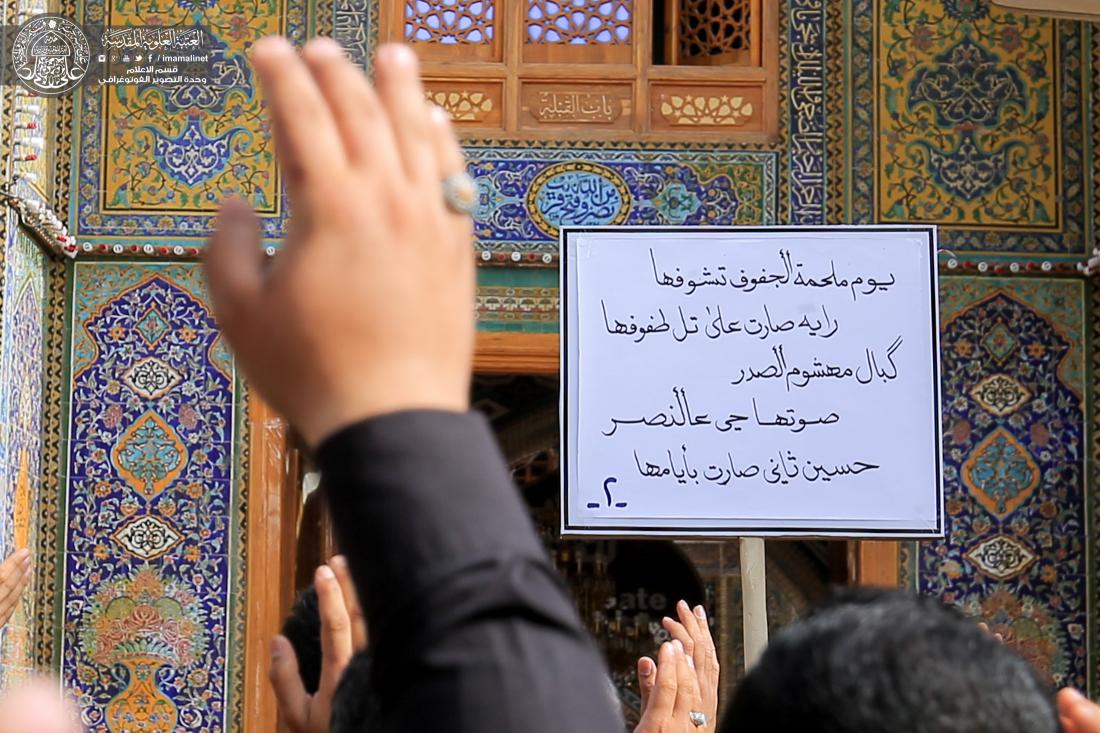 العتبة العلوية المقدسة
/ imamalinet
قسم الاعلام
وحدة التصوير الفوتوغرافي
باب القبلة
نصر من الله وفتح قريب
يوم ملحمة الجفوف تشوفها
رايه صارت على تل طفوفها
گبال مهشوم الصدر
صوتها جي عالنصر
حسين ثاني صارت بأيامها
-٢-
ate